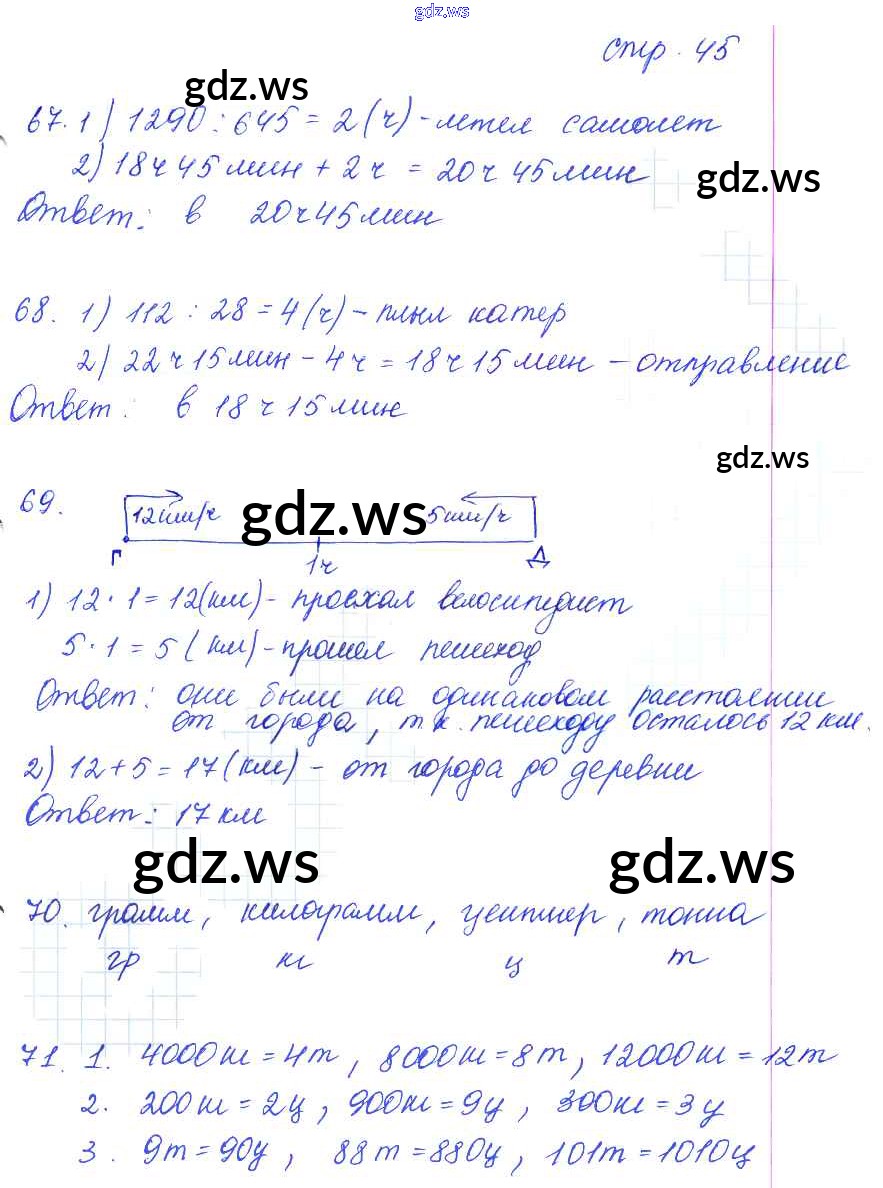 gdz.ws
стр. 45
gdz.ws
67. 1) 1290 : 645 = 2 (ч) - летел самолет
2) 18 ч 45 мин + 2 ч = 20 ч 45 мин
gdz.ws
Ответ: в 20 ч 45 мин
68. 1) 112 : 28 = 4 (ч) - плыл катер
2) 22 ч 15 мин - 4 ч = 18 ч 15 мин - отправление
Ответ: в 18 ч 15 мин
gdz.ws
69.
12 км/ч gdz.ws 5 км/ч
Г 1ч Д
1) 12 · 1 = 12 (км) - проехал велосипедист
5 · 1 = 5 (км) - прошел пешеход
Ответ: они были на одинаковом расстоянии
от города, т.к. пешеходу осталось 12 км.
2) 12 + 5 = 17 (км) - от города до деревни
Ответ: 17 км
gdz.ws gdz.ws
70. грамм, килограмм, центнер, тонна
гр кг ц т
71. 1. 4000 кг = 4 т, 8000 кг = 8 т, 12000 кг = 12 т
2. 200 кг = 2 ц, 900 кг = 9 ц, 300 кг = 3 ц
3. 9 т = 90 ц, 88 т = 880 ц, 101 т = 1010 ц